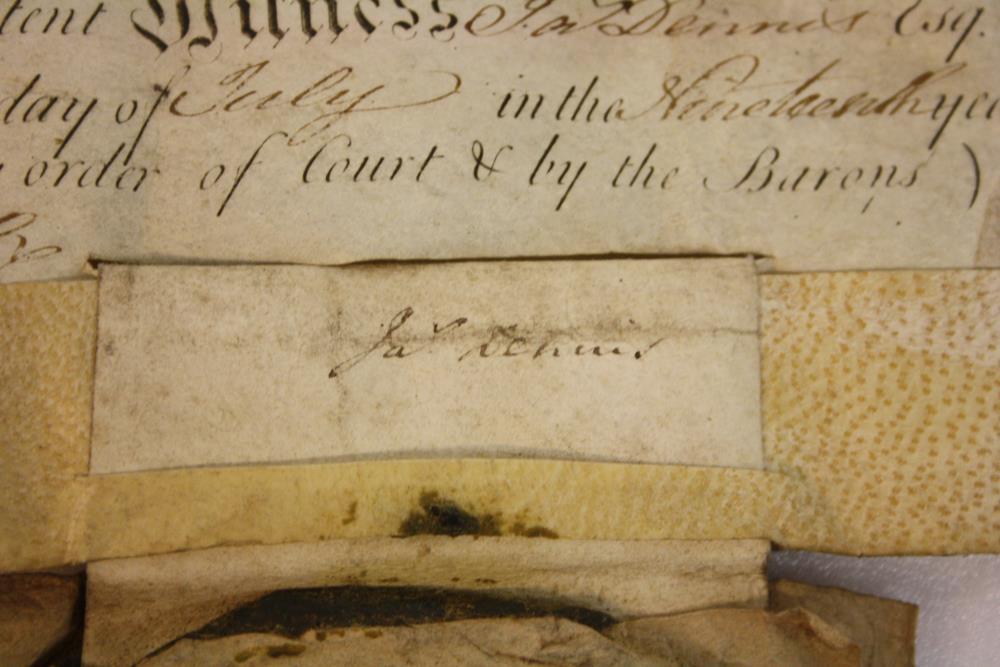 tent Witness Jas Dennis Esq.
day of July in the Nineteenth yea
order of Court & by the Barons )
Jas Dennis